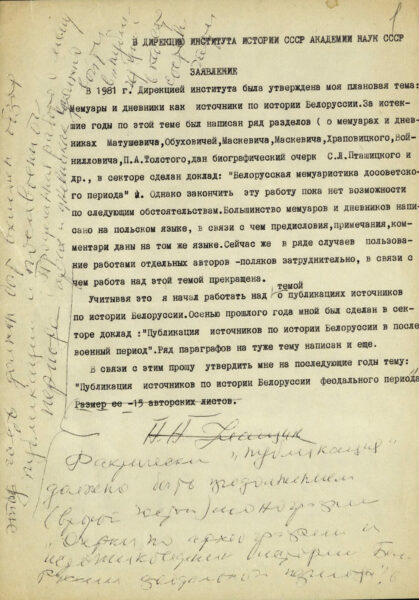 1
В ДИРЕКЦИЮ ИНСТИТУТА ИСТОРИИ СССР АКАДЕМИИ НАУК СССР
ЗАЯВЛЕНИЕ
В 1981 г. Дирекцией института была утверждена моя плановая тема:
Мемуары и дневники как источники по истории Белоруссии. За истек-
шие годы по этой теме был написан ряд разделов ( о мемуарах и днев-
никах Матушевича, Обуховичей, Маскевича, Маскевича, Храповицкого, Вой-
нилловича, П.А.Толстого, дан биографический очерк С.Л.Пташицкого и
др., в секторе сделан доклад: "Белорусская мемуаристика досоветско-
го периода" и. Однако закончить эту работу пока нет возможности
по следующим обстоятельствам. Большинство мемуаров и дневников напи-
сано на польском языке, в связи с чем предисловия, примечания, ком-
ментари даны на том же языке. Сейчас же в ряде случаев пользова-
ние работами отдельных авторов -поляков затруднительно, в связи с
чем работа над этой темой прекращена.
Учитывая это я начал работать над темой о публикациях источников
по истории Белоруссии. Осенью прошлого года мной был сделан в сек-
торе доклад :"Публикация источников по истории Белоруссии в после
военный период". Ряд параграфов на туже тему написан и еще.
В связи с этим прошу утвердить мне на последующие годы тему:
"Публикация источников по истории Белоруссии феодального периода"
Размер ее -15 авторских листов.
Н Н Улащик
Фактически "публикация"
должно быть продолжением
(второй частью) монографии
"Очерки по археографии и
источниковедению истории Бело
руссии феодального периода"